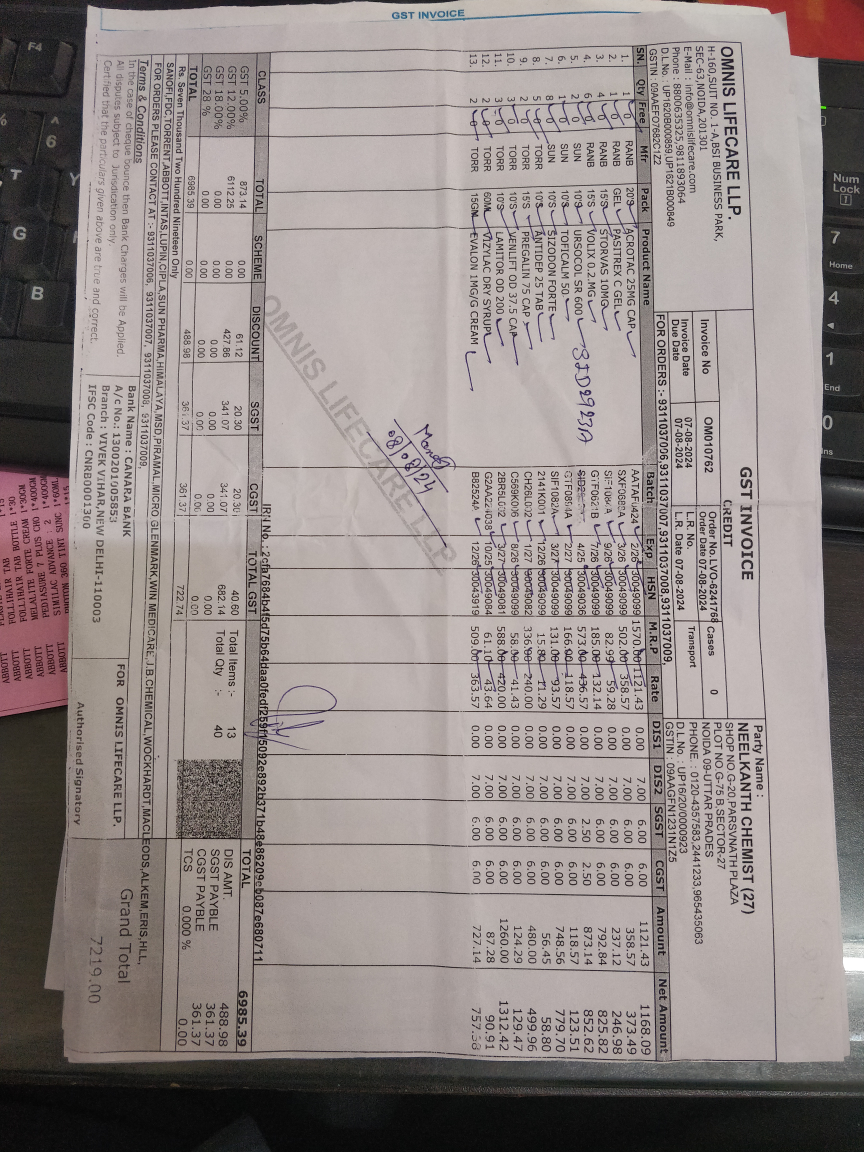 GST INVOICE
OMNIS LIFECARE LLP.
H-160,SUIT NO. 1-A,BSI BUSINESS PARK,
SEC-63,NOIDA,201301
E-Mail : info@omnislifecare.com
Phone : 8800635325,9811893064
D.L.No. : UP1620B000859,UP1621B000849
GSTIN : 09AAEFO7682C1Z2
GST INVOICE
CREDIT
Invoice No OM010762 Order No. LVO-6241768 Cases 0
Order Date 07-08-2024
Invoice Date 07-08-2024 L.R. No. Transport
Due Date 07-08-2024 L.R. Date 07-08-2024
FOR ORDERS :- 9311037006,9311037007,9311037008,9311037009,
Party Name :
NEELKANTH CHEMIST (27)
SHOP NO.G-20,PARSVNATH PLAZA
PLOT NO.G-75 B,SECTOR-27
NOIDA 09-UTTAR PRADES
PHONE : 0120-4357583,2441233,965435063
D.L.No. : UP16/20/0000923
GSTIN : 09AAGFN1231N1Z5
SN. Qty Free Mfr Pack Product Name Batch Exp HSN M.R.P Rate DIS1 DIS2 SGST CGST Amount Net Amount
1. 1 0 RANB 20'S ACROTAC 25MG CAP 2/26 30049099 1570.00 1121.43 0.00 7.00 6.00 6.00 1121.43 1168.09
2. 1 0 RANB GEL PASITREX O GEL 3/26 30049099 502.00 358.57 0.00 7.00 6.00 6.00 358.57 373.49
3. 4 0 RANB 15'S STORVAS 10MG 9/26 30049099 82.99 59.28 0.00 7.00 6.00 6.00 237.12 246.98
4. 6 0 RANB 15'S VOLIX 0.2.MG 7/26 30049099 185.00 132.14 0.00 7.00 6.00 6.00 792.84 825.82
5. 2 0 SUN 10'S URSOCOL SR 600 32D2923A 4/25 30049036 573.00 436.57 0.00 7.00 2.50 2.50 873.14 852.62
6. 1 0 SUN 10'S TOFICALM 50 2/27 30049099 166.00 118.57 0.00 7.00 6.00 6.00 118.57 123.51
7. 8 0 SUN 10'S SIZODON FORTE SIF1082A 3/27 30049099 131.00 93.57 0.00 7.00 6.00 6.00 748.56 779.70
8. 5 0 TORR 10'S ANTIDEP 25 TAB 2141K001 12/26 30049099 15.80 11.29 0.00 7.00 6.00 6.00 56.45 58.80
9. 2 0 TORR 15'S PREGALIN 75 CAP CH26L032 1/27 30049082 336.00 240.00 0.00 7.00 6.00 6.00 480.00 499.96
10. 3 0 TORR 10'S VENLIFT OD 37.5 CAP C569K006 8/26 30049099 58.00 41.43 0.00 7.00 6.00 6.00 124.29 129.47
11. 3 0 TORR 10'S LAMITOR OD 200 2BR5L032 3/27 30049081 588.00 420.00 0.00 7.00 6.00 6.00 1260.00 1312.42
12. 2 0 TORR 60M VIZYLAC DRY SYRUP 10/25 30049084 61.10 43.64 0.00 7.00 6.00 6.00 87.28 90.91
13. 2 0 TORR 15GM EVALON 1MG/G CREAM B82524A 12/26 30043919 509.00 363.57 0.00 7.00 6.00 6.00 727.14 757.38
08/08/24
OMNIS LIFECARE LLP
IRN No.:
CLASS TOTAL SCHEME DISCOUNT SGST CGST TOTAL GST
GST 5.00% 873.14 0.00 61.12 20.30 20.30 40.60
GST 12.00% 6112.25 0.00 427.86 341.07 341.07 682.14
GST 18.00% 0.00 0.00 0.00 0.00 0.00 0.00
GST 28 % 0.00 0.00 0.00 0.00 0.00 0.00
TOTAL 6985.39 0.00 488.98 361.37 361.37 722.74
Total Items :- 13
Total Qty :- 40
TOTAL 6985.39
DIS AMT. 488.98
SGST PAYBLE 361.37
CGST PAYBLE 361.37
TCS 0.000 % 0.00
Rs. Seven Thousand Two Hundred Nineteen Only
SANOFI,FDC,TORRENT,ABBOTT,INTAS,LUPIN,CIPLA,SUN PHARMA,HIMALAYA,MSD,PIRAMAL,MICRO GLENMARK,WIN MEDICARE,J.B.CHEMICAL,WOCKHARDT,MACLEODS,ALKEM,ERIS,HLL,
FOR ORDERS PLEASE CONTACT AT :- 9311037006, 9311037007, 9311037008, 9311037009,
Terms & Conditions
In the case of cheque bounce then Bank Charges will be Applied.
All disputes subject to Jurisdication only.
Certified that the particulars given above are true and correct.
Bank Name : CANARA BANK
A/c No.: 1300201005853
Branch : VIVEK VIHAR,NEW DELHI-110003
IFSC Code : CNRB0001300
FOR OMNIS LIFECARE LLP.
Authorised Signatory
Grand Total
7219.00
F4
6
T
Y
G
B
Num
Lock
7
Home
4
1
End
0
Ins
ABBOTT
ABBOTT
ABBOTT
ABBOTT